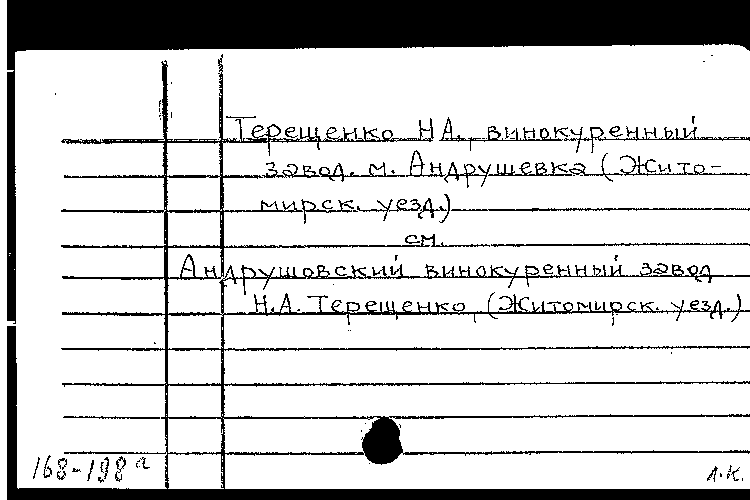 Терещенко Н.А., винокуренный
завод. м. Андрушевка (Жито-
мирск. уезд.)
см.
Андрушовский винокуренный завод
Н.А. Терещенко, (Житомирск. уезд.)
168-198 а
А.К.